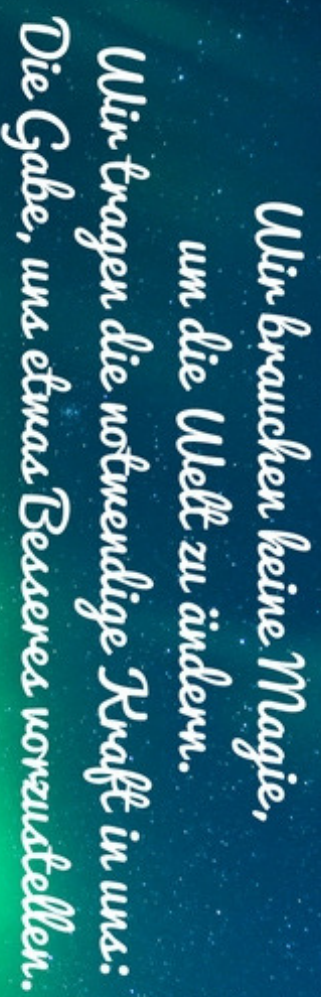 Wir brauchen keine Magie,
um die Welt zu ändern.
Wir tragen die notwendige Kraft in uns:
Die Gabe, uns etwas Besseres vorzustellen.